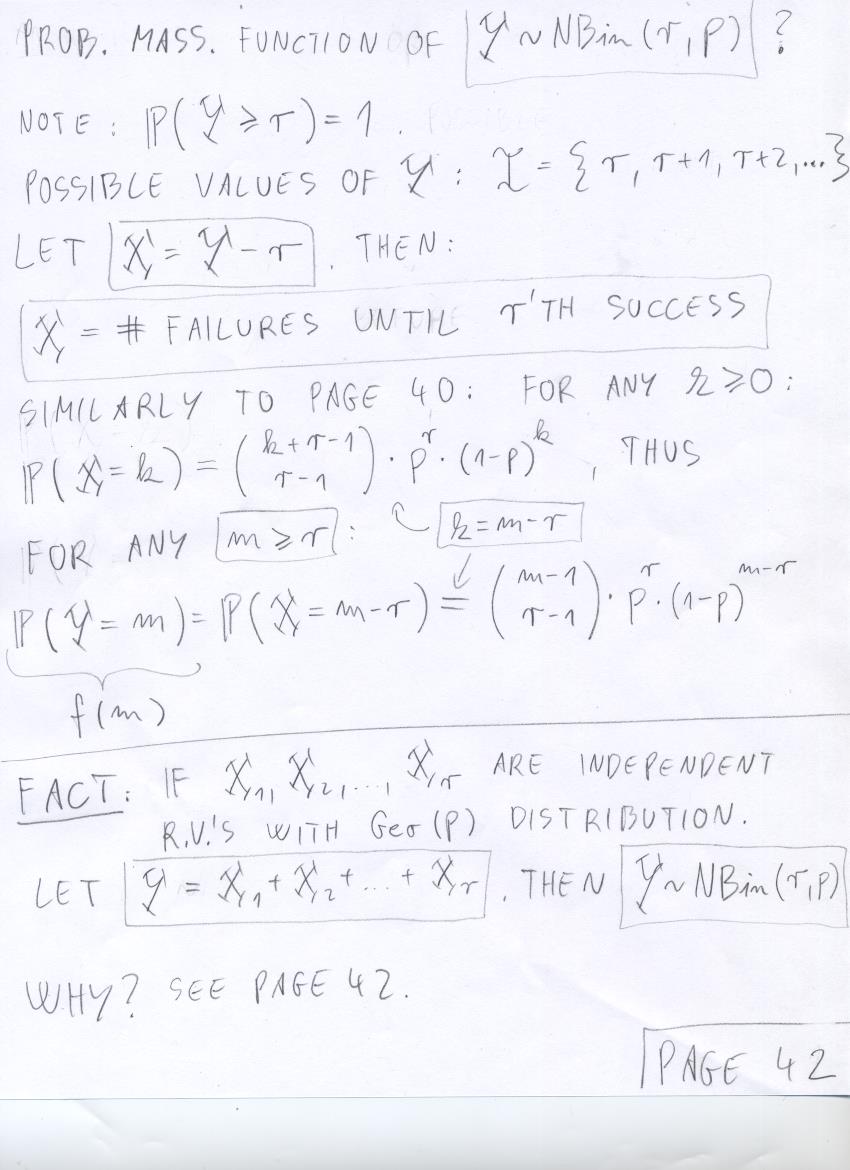 PROB. MASS. FUNCTION OF Y ~ NBin(r, p) ?
NOTE: P(Y ⩾ r) = 1.
POSSIBLE VALUES OF Y: X = {r, r+1, r+2,...}
LET X = Y - r. THEN:
X = # FAILURES UNTIL r'TH SUCCESS
SIMILARLY TO PAGE 40: FOR ANY k ⩾ 0:
P(X = k) = (k+r-1 r-1) · p^r · (1-p)^k, THUS
FOR ANY m ⩾ r: k = m - r
P(Y = m) = P(X = m - r) = (m-1 r-1) · p^r · (1-p)^(m-r)
f(m)
FACT: IF X1, X2, ..., Xr ARE INDEPENDENT
R.V.'S WITH Geo(p) DISTRIBUTION.
LET Y = X1 + X2 + ... + Xr. THEN Y ~ NBin(r, p)
WHY? SEE PAGE 42.
PAGE 42